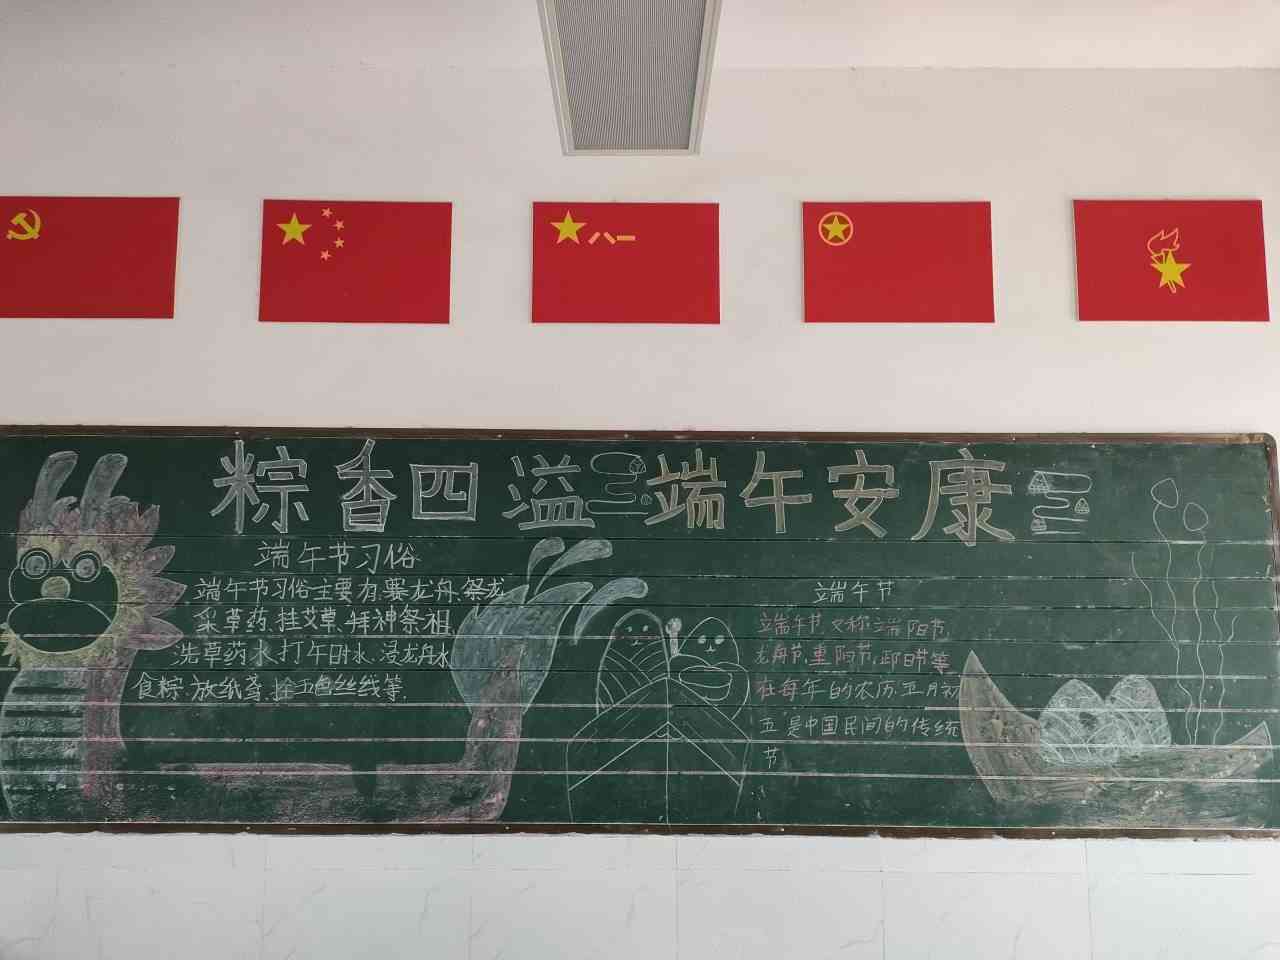 粽香四溢 端午安康
端午节习俗
端午节习俗主要有:赛龙舟、祭龙
采草药、挂艾草、拜神祭祖、
洗草药水、打午时水、浸龙舟水、
食粽、放纸鸢、拴五色丝线等.
端午节
端午节,又称端阳节,
龙舟节,重阳节,
在每年的农历五月初
五是中国民间的传统
节
八一